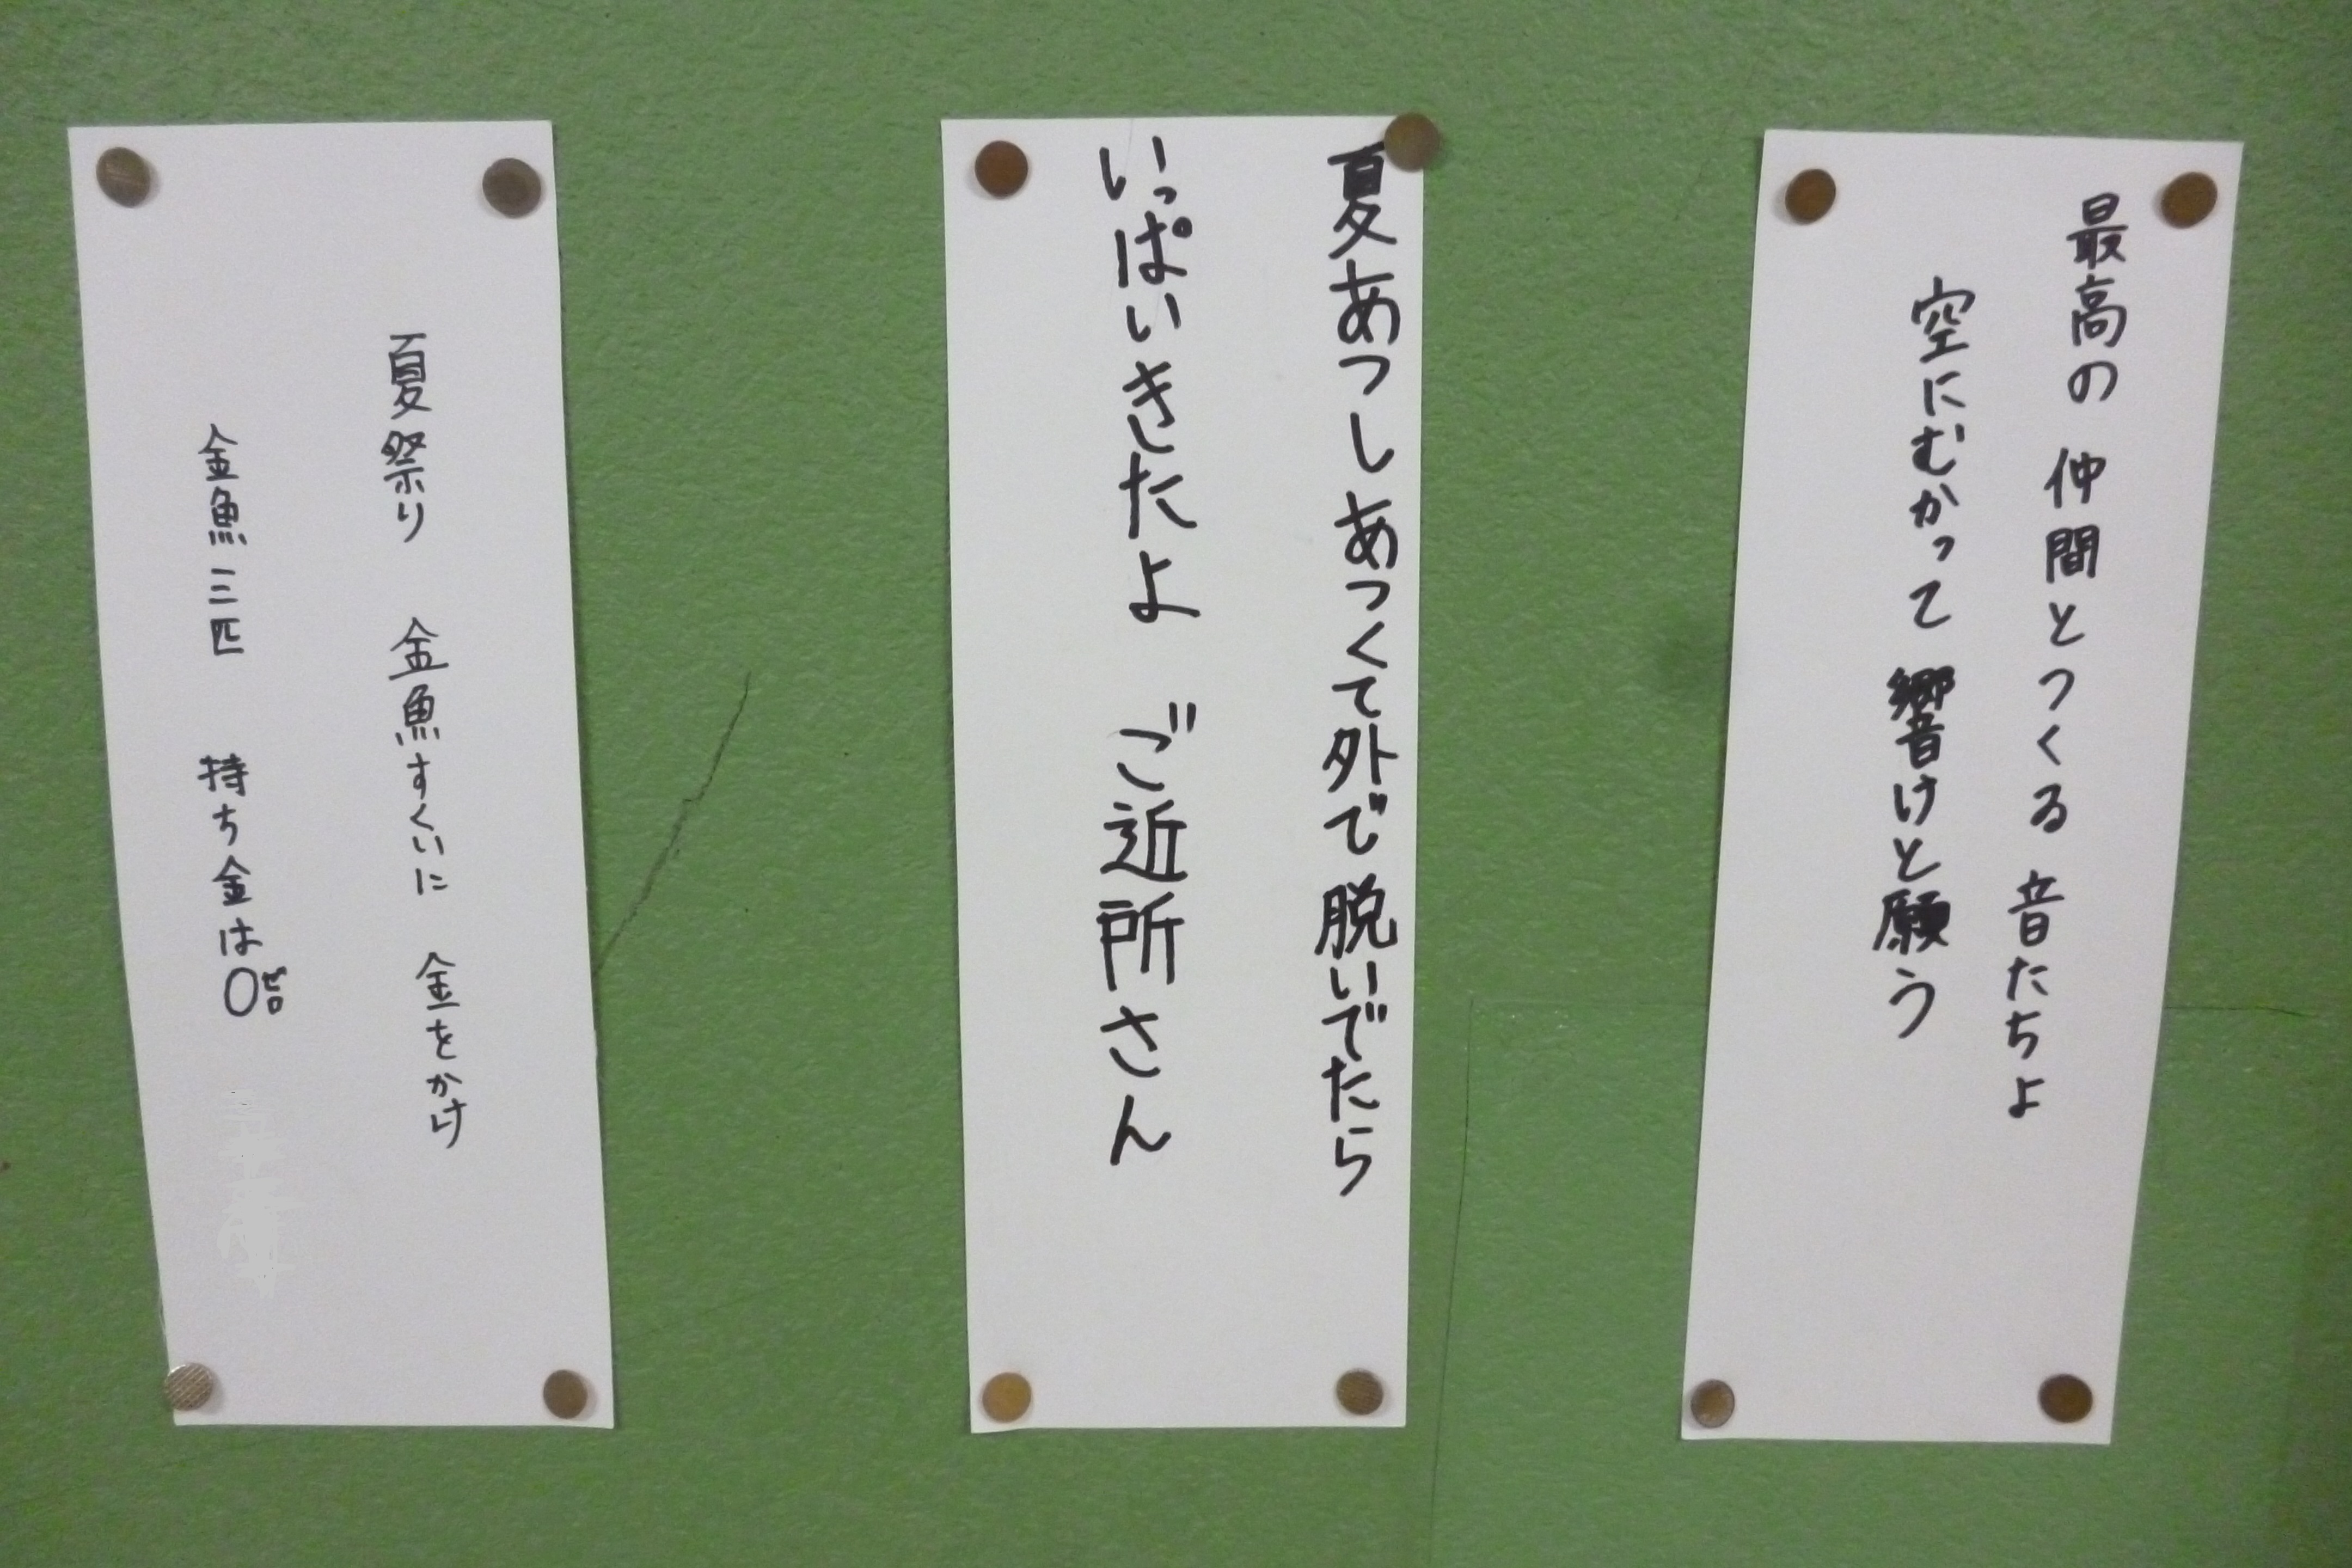 最高の 仲間とつくる 音たちよ
空にむかって 響けと願う
夏あつしあつくて外で脱いでたら
いっぱいきたよ ご近所さん
夏祭り 金魚すくいに 金をかけ
金魚三匹 持ち金は0ゼロ